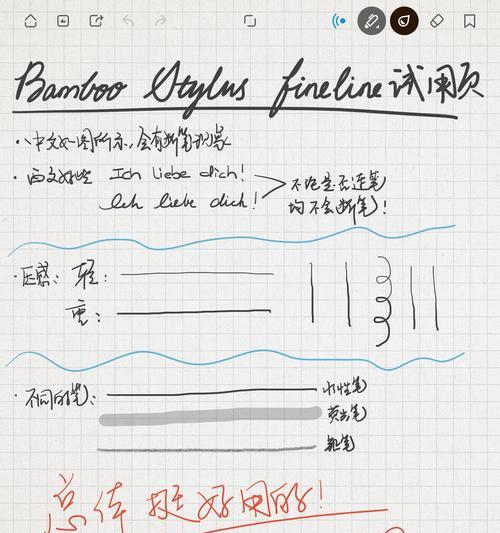 Bamboo Stylus fineline 试用页
· 中文如图所示,会有断笔现象
· 西文好些 Ich liebe dich!
Ich liebe dich!
不论是否连笔
均不会断笔!
· 压感: 轻:
重:
· 不同的笔:
水性笔
荧光笔
铅笔
总体挺好用的!